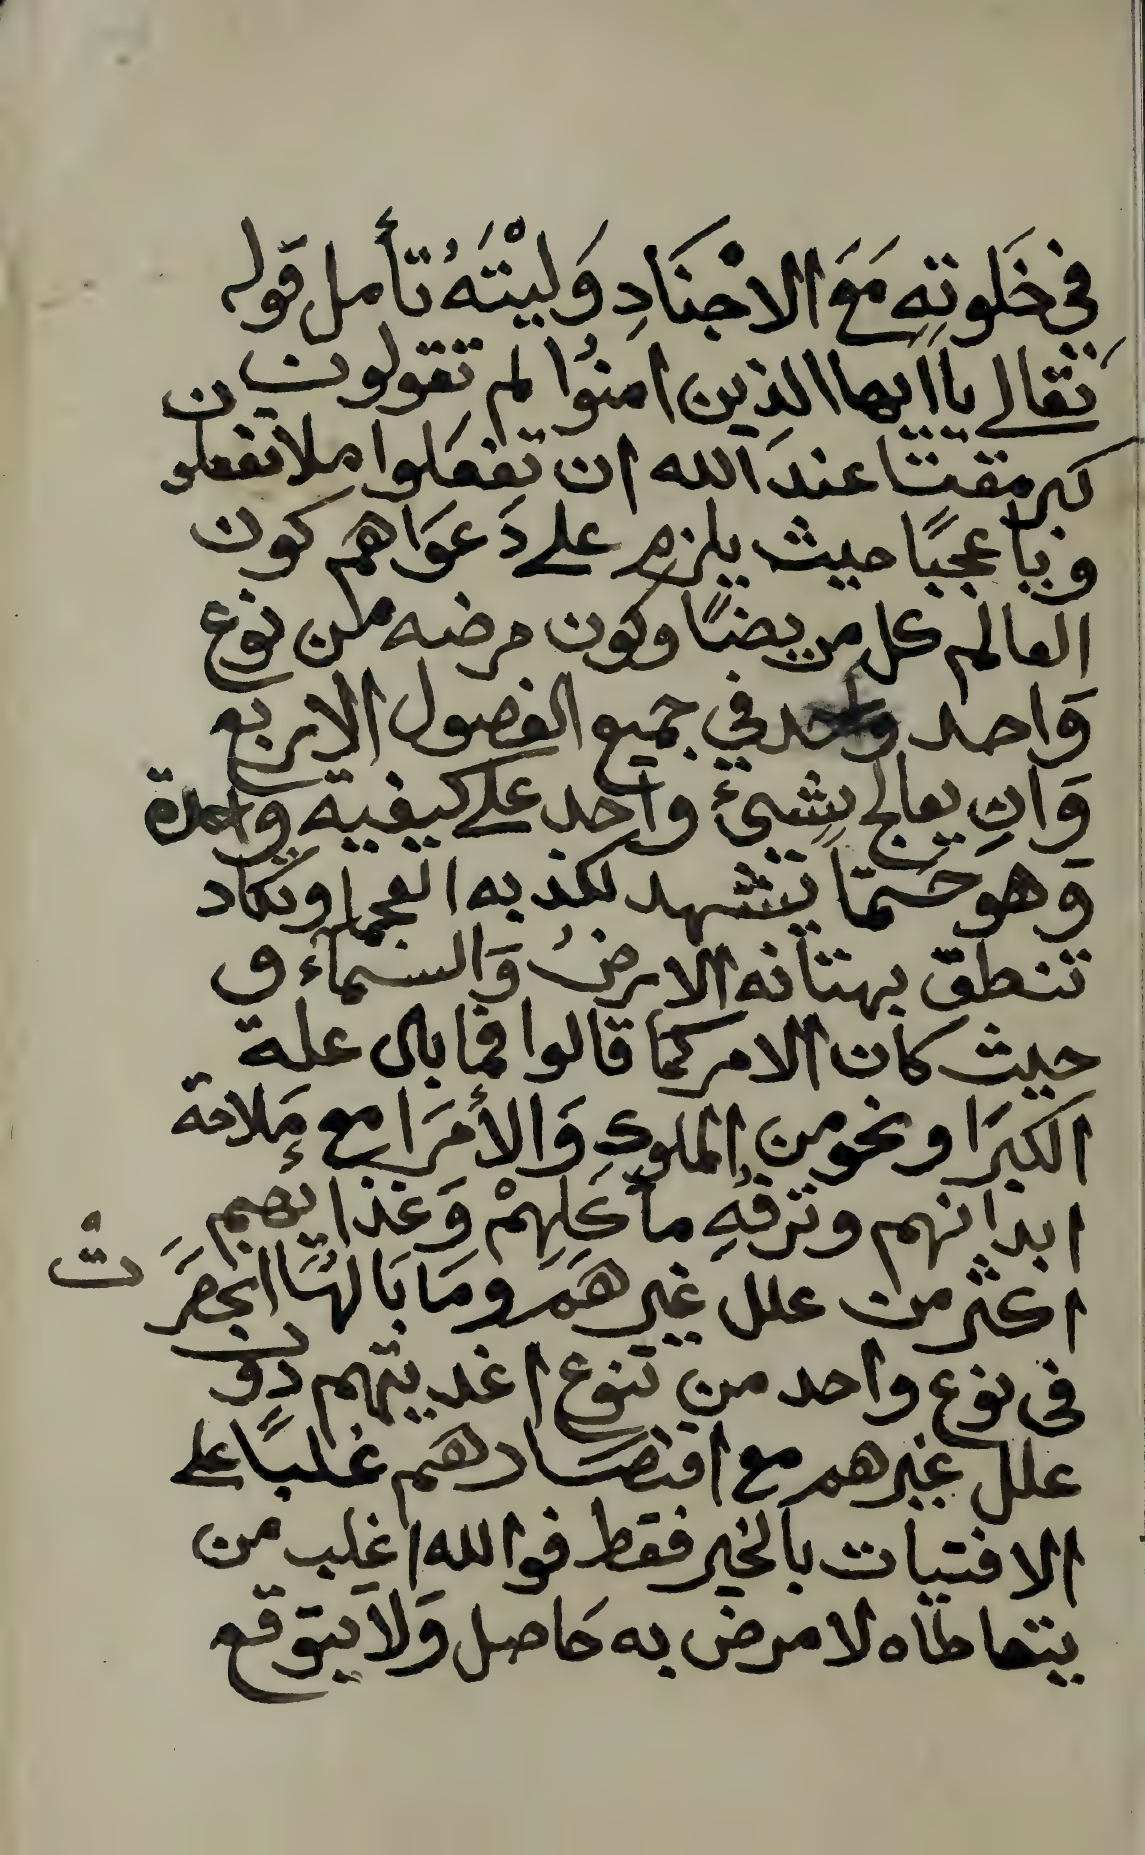 في خَلوتهِ مَعَ الاجْنَادِ وَليْتَهُ تأمل قَوله
تعَالى ياايها الذين امنوُا لم تقولون
كبر مقتا عندَ الله ان تفعَلوا ملا تفعلون
ويا عجبًا حيث يلزم على دَعوَاهم كون
العالم كل مريضًا وكون مرضه من نوع
وَاحد واحد في جميع الفصول الاربع
وَانِ يعالج بِشيئ واحد على كيفية واحدة
وَهو حَتمّا يتشهد لكذبه العجما وتكاد
تنطقّ بهتانه الارضُ وَالسمآء و
حيث كان الامر كما قالوا فما بال علة
الكبرَا ونحو من الملوكِ وَالأمَرَا مع مَلاحة
ابدَانهم وترفهِ مأكَلِهمْ وَغذايهم
اكثر من علل غيرهَم ومَا بَالهَا انحصَرَتْ
في نوع واحد من تنوع اغديتهم دون
علل غيرهم مع اقتصَادهَم غلبًا على
الاقتيات بالخبر فقط فوالله اغلب من
يتعاطاه لا مرض به حَاصل وَلا يتوقع